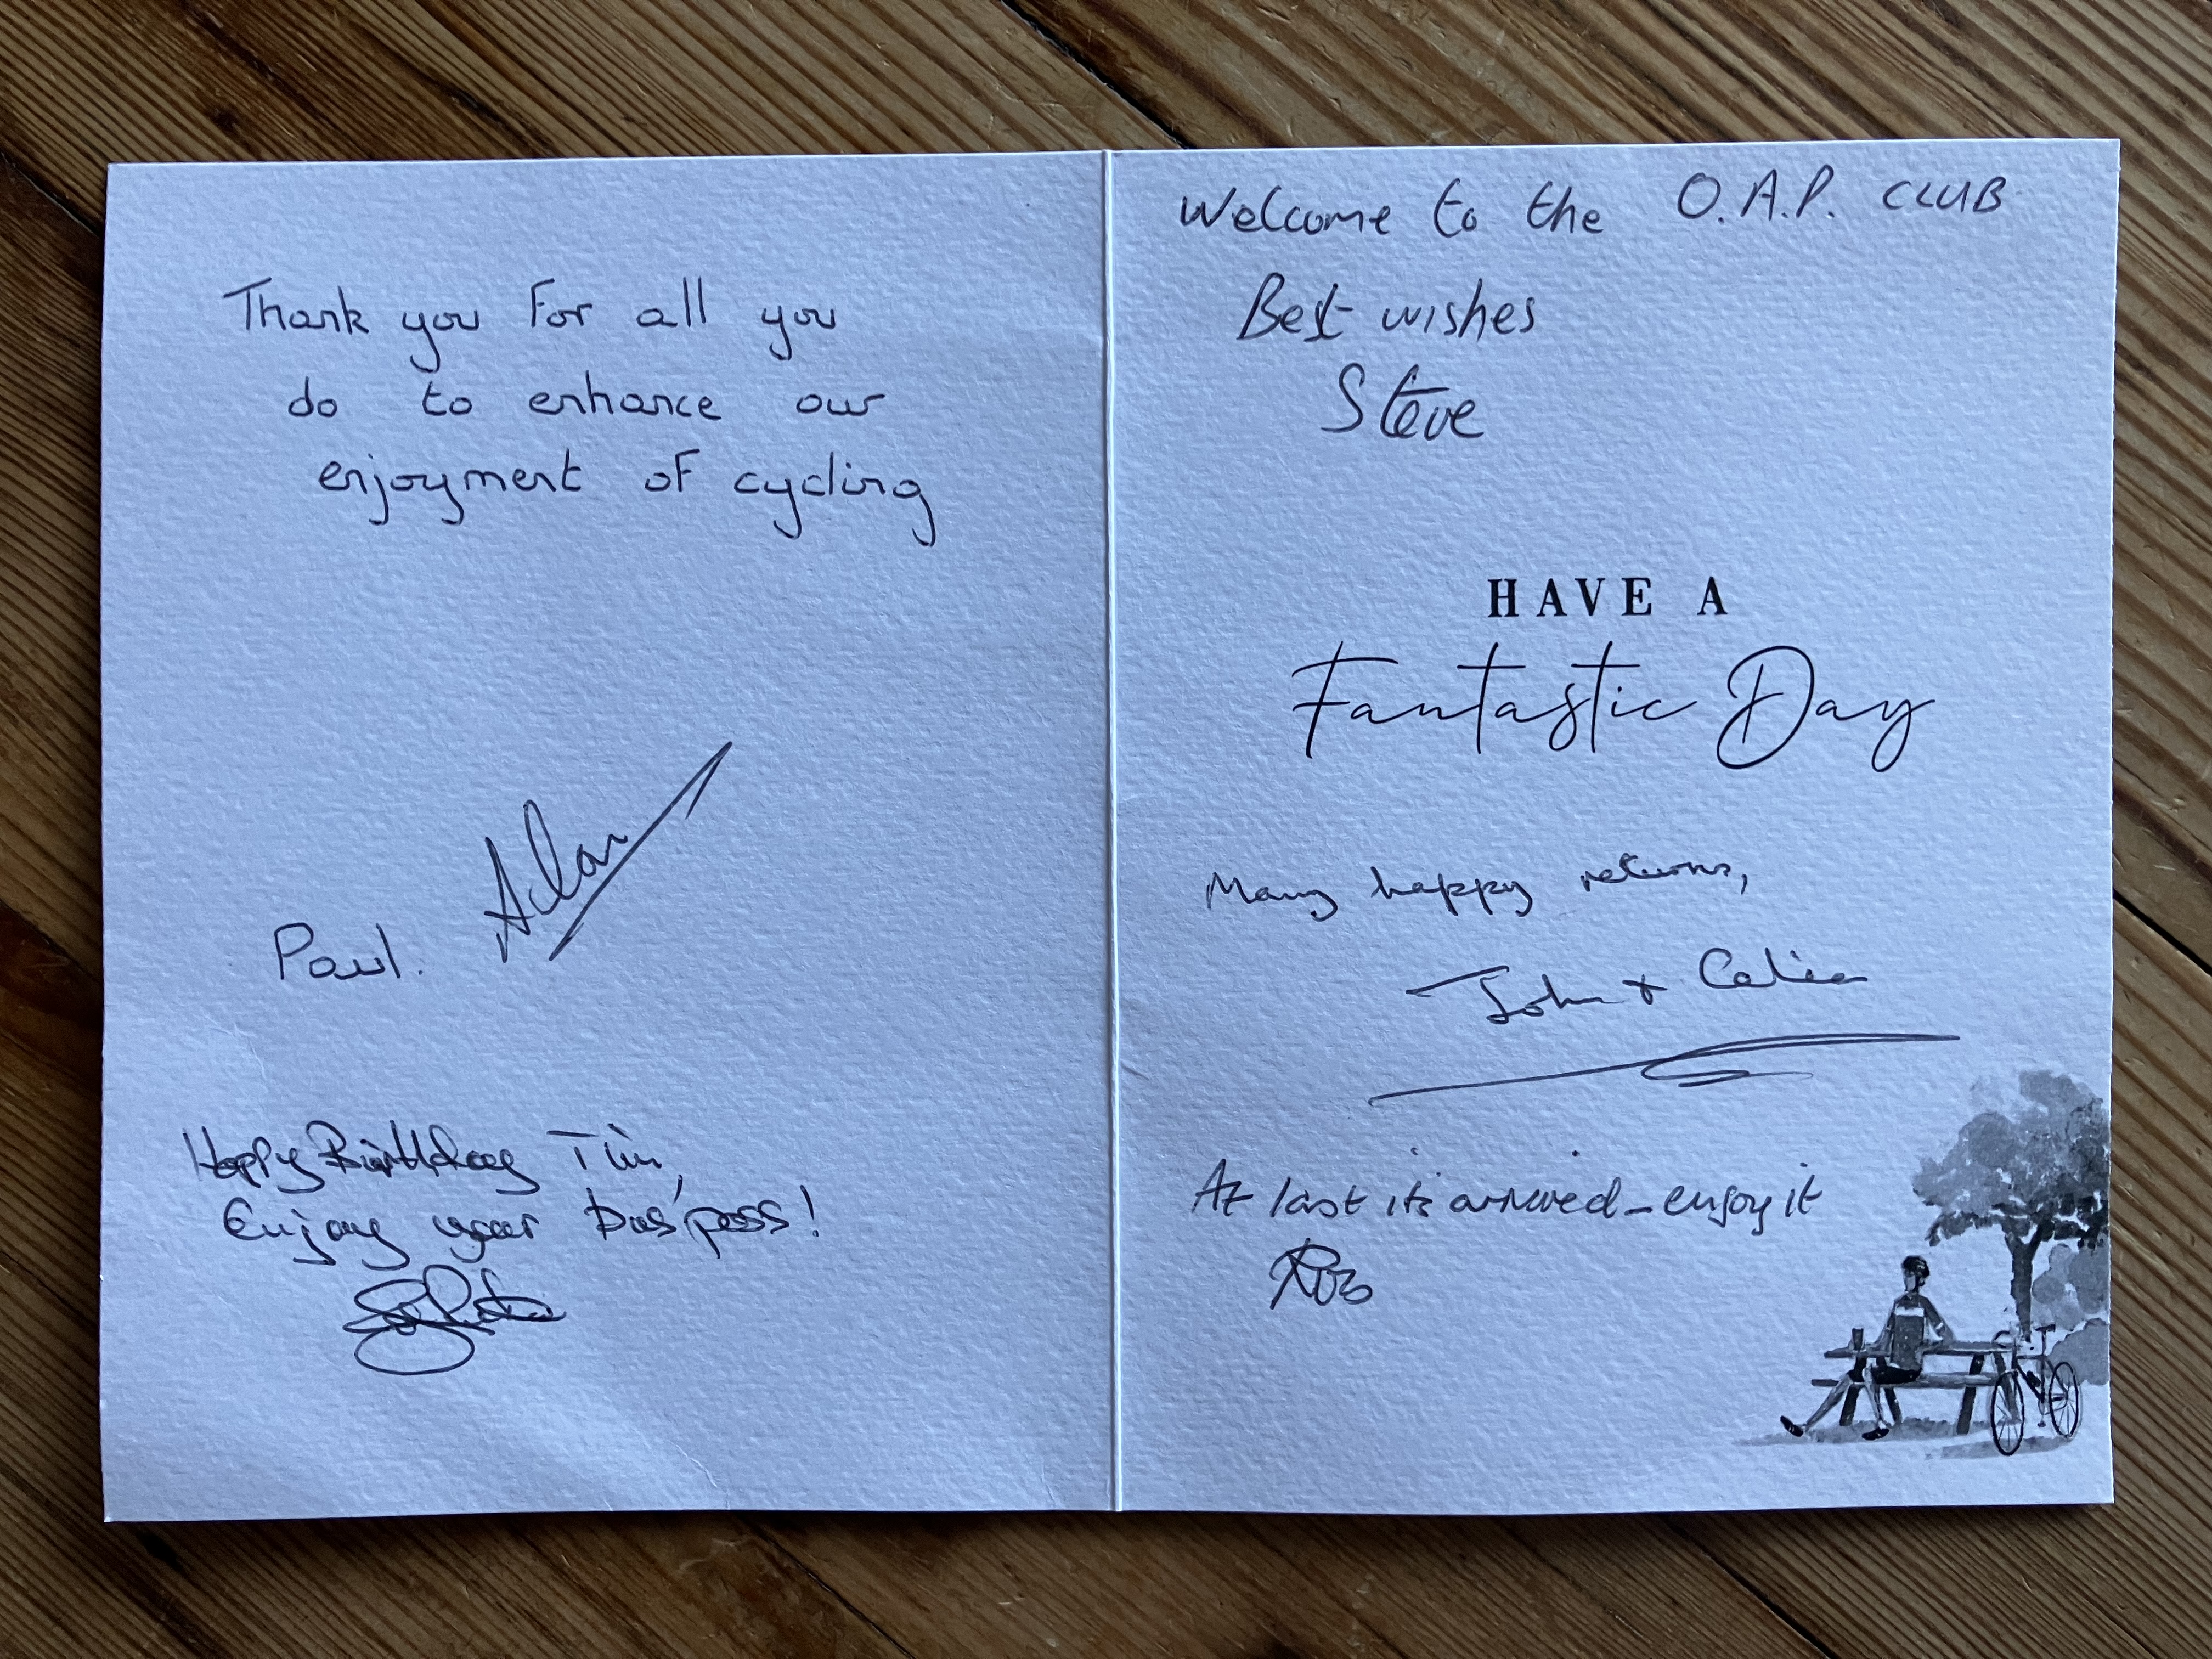 Thank you For all you
do to enhance our
enjoyment of cycling
Alan
Paul.
Happy Birthday Tim,
Enjoy your bus pass!
Welcome to the O.A.P. CLUB
Best wishes
Steve
HAVE A
Fantastic Day
Many happy returns,
John + Celia
At last it's arrived - enjoy it
Rob